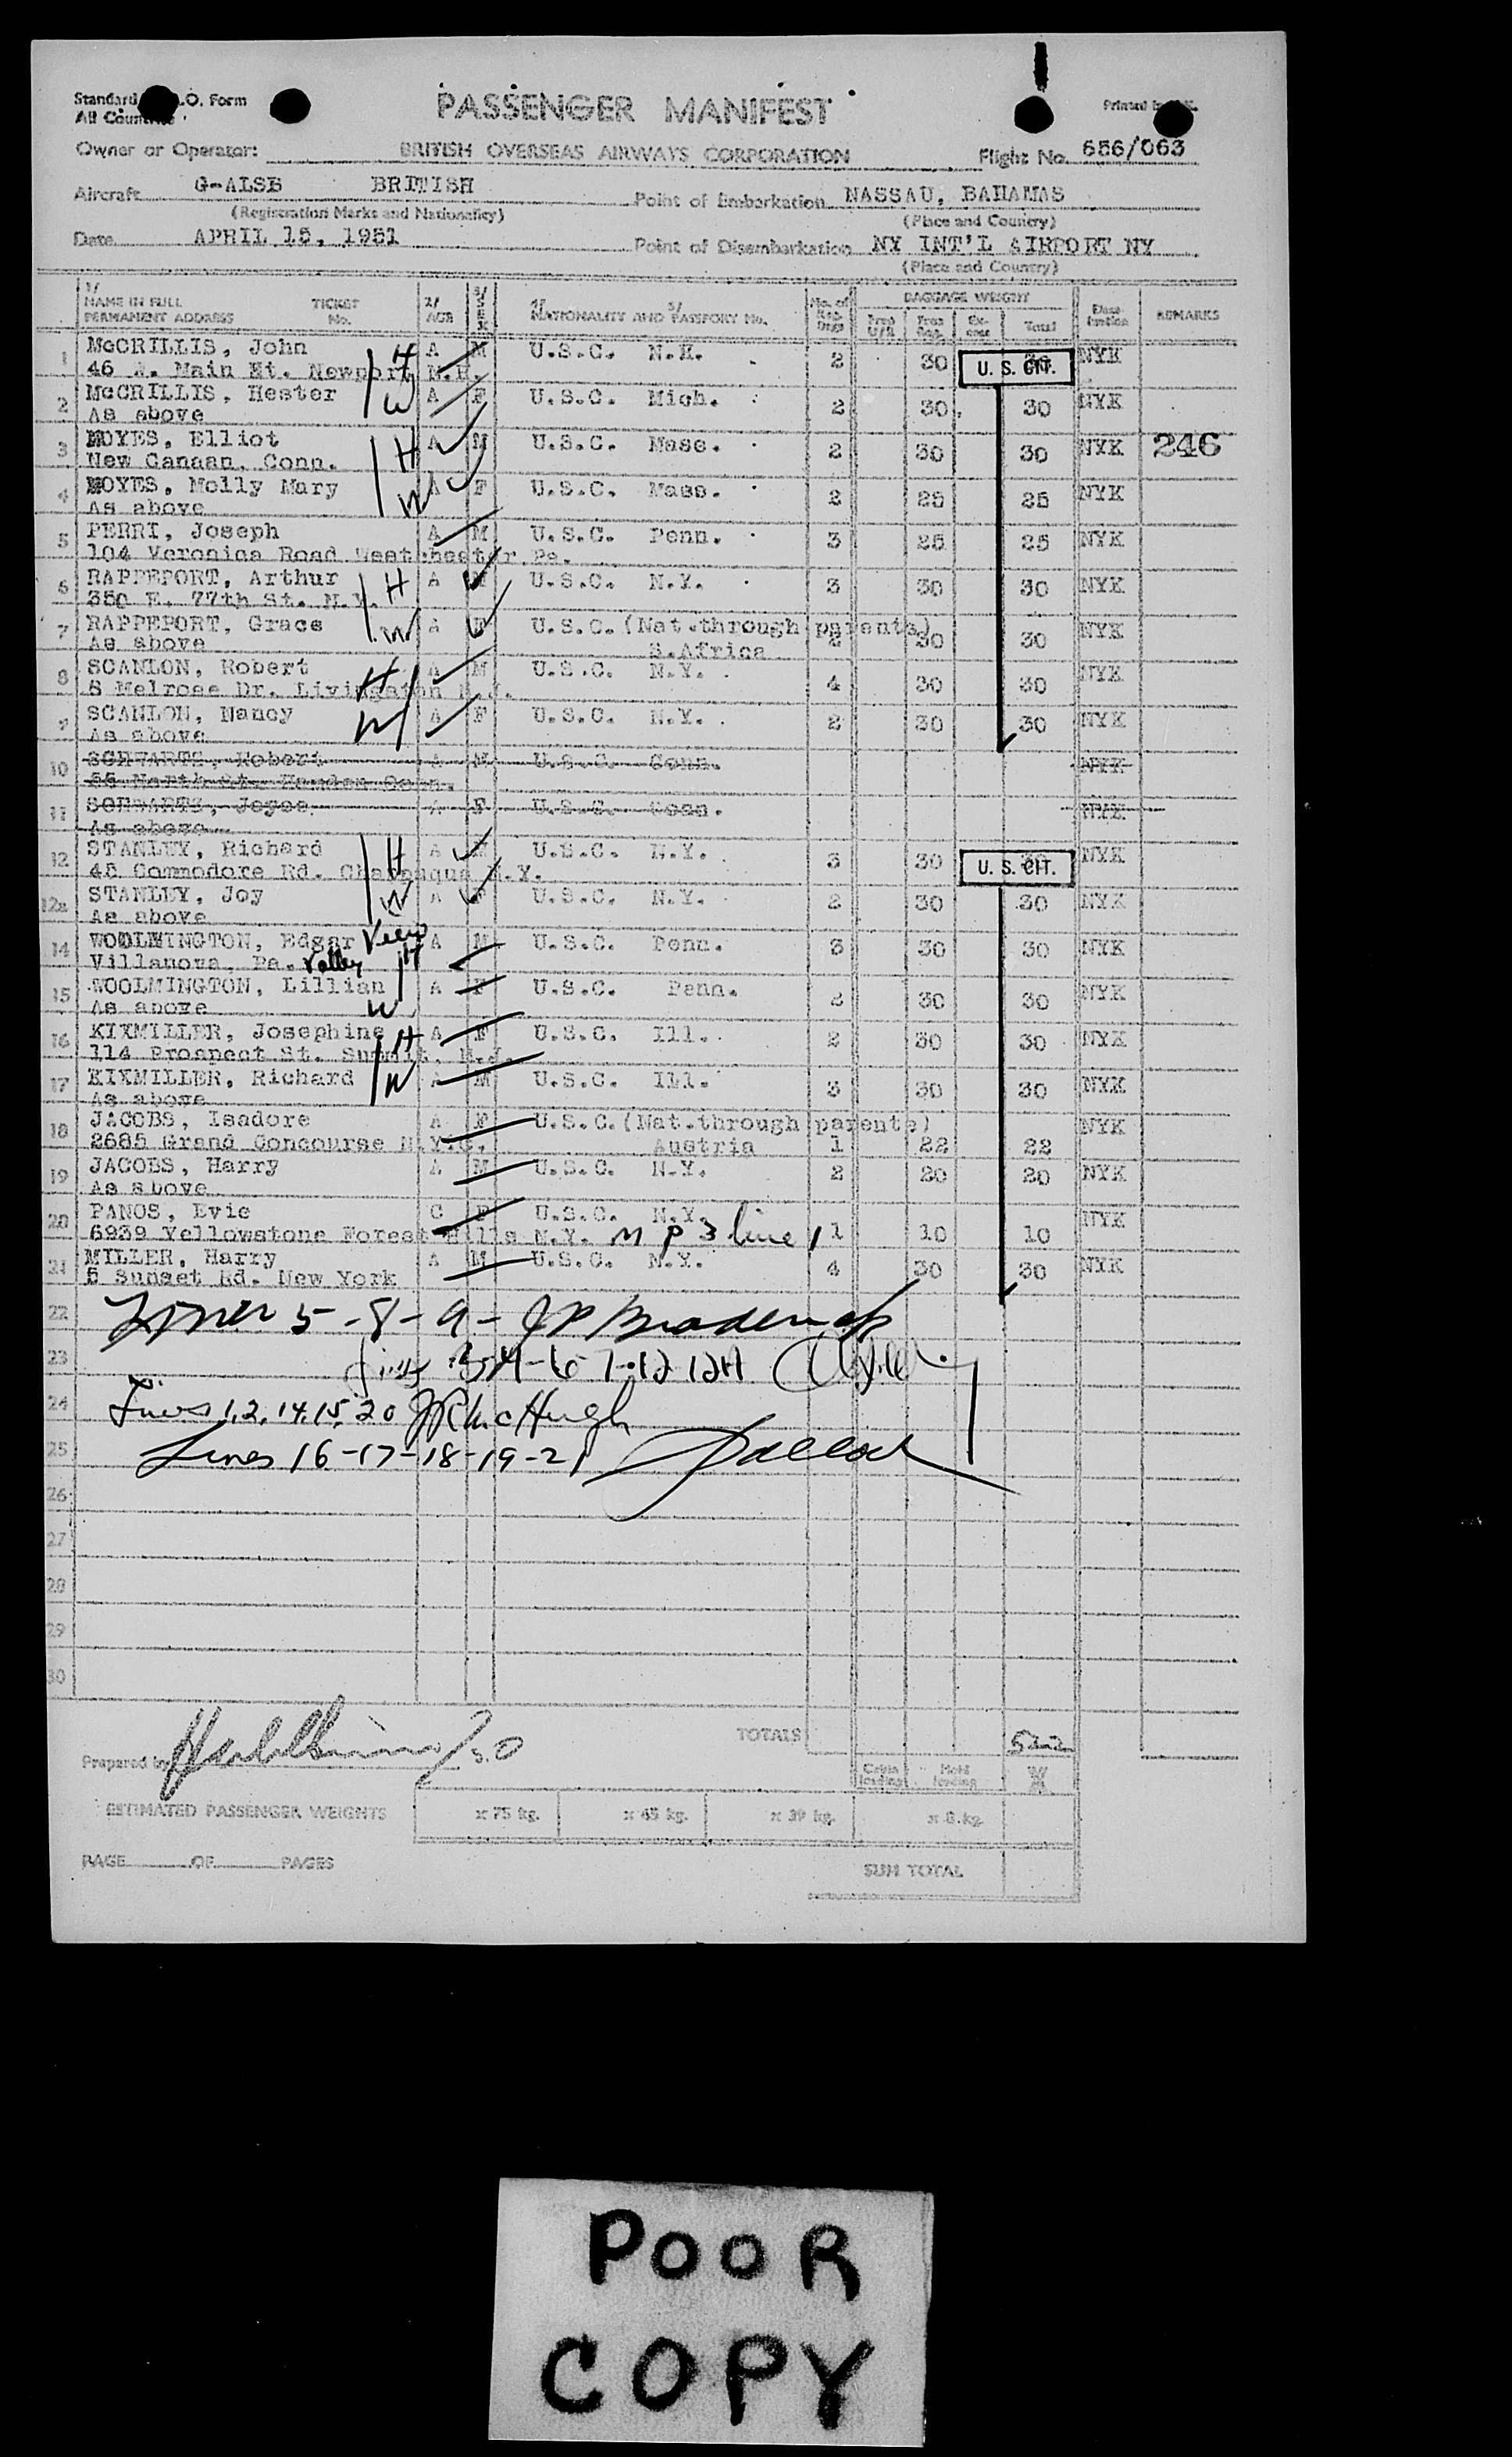 Standard .O. Form
All Countries
PASSENGER MANIFEST
Printed in
Owner or Operator: BRITISH OVERSEAS AIRWAYS CORPORATION Flight No. 656/063
Aircraft G-ALSB BRITISH Point of Embarkation NASSAU, BAHAMAS
(Registration Marks and Nationality) (Place and Country)
Date APRIL 15, 1951 Point of Disembarkation NY INT'L AIRPORT NY
(Place and Country)
1/ NAME IN FULL PERMANENT ADDRESS TICKET No. 2/ AGE 3/ SEX 4/ NATIONALITY AND 5/ PASSPORT No. No. of Reg. Bags BAGGAGE WEIGHT Free Reg. Ex-cess Total Dest-ination REMARKS
1 McCRILLIS, John H A M U.S.C. N.H. 2 30 U. S. CIT. NYK
46 Main St. Newport N.H.
2 McCRILLIS, Hester W A F U.S.C. Mich. 2 30 30 NYK
As above
3 NOYES, Elliot H A M U.S.C. Mass. 2 30 30 NYK 246
New Canaan, Conn.
4 NOYES, Molly Mary W A F U.S.C. Mass. 2 25 25 NYK
As above
5 PERRI, Joseph A M U.S.C. Penn. 3 25 25 NYK
104 Veronica Road West chester Pa.
6 RAPPEPORT, Arthur H A M U.S.C. N.Y. 3 30 30 NYK
350 E. 77th St. N.Y.
7 RAPPEPORT, Grace W A F U.S.C. (Nat.through parents) 2 30 30 NYK
As above S.Africa
8 SCANLON, Robert H A M U.S.C. N.Y. 4 30 30 NYK
8 Melrose Dr. Livingston N.J.
9 SCANLON, Nancy W A F U.S.C. N.Y. 2 30 30 NYK
As above
10 SCHWARTZ, Robert A M U.S.C. Conn. NYK
55 North St. Hamden Conn.
11 SCHWARTZ, Joyce A F U.S.C. Conn. NYK
As above
12 STANLEY, Richard H A M U.S.C. N.Y. 3 30 U. S. CIT. NYK
45 Commodore Rd. Chappaqua N.Y.
12a STANLEY, Joy W A F U.S.C. N.Y. 2 30 30 NYK
As above
14 WOOLMINGTON, Edgar View H A M U.S.C. Penn. 3 30 30 NYK
Villanova, Pa. Valley
15 WOOLMINGTON, Lillian W A F U.S.C. Penn. 2 30 30 NYK
As above
16 KIXMILLER, Josephine H A F U.S.C. Ill. 2 30 30 NYK
114 Prospect St. Summit, N.J.
17 KIXMILLER, Richard W A M U.S.C. Ill. 3 30 30 NYK
As above
18 JACOBS, Isadore A F U.S.C. (Nat.through parents) NYK
2685 Grand Concourse N.Y.C. Austria 1 22 22
19 JACOBS, Harry A M U.S.C. N.Y. 2 20 20 NYK
As above
20 PANOS, Evie C F U.S.C. N.Y. NYK
6939 Yellowstone Forest Hills N.Y. M P 3 line 1 1 10 10
21 MILLER, Harry A M U.S.C. N.Y. 4 30 30 NYK
5 Sunset Rd. New York
22 Lines 5-8-9-
23 Lines 3-4-6-7-12 12A
24 Lines 1,2,14,15,20 McHugh
25 Lines 16-17-18-19-21
26
27
28
29
30
TOTALS 522
Prepared by
Cabin loading Hold loading
ESTIMATED PASSENGER WEIGHTS x 75 kg. x 65 kg. x 39 kg. x 8 kg.
PAGE OF PAGES SUM TOTAL
POOR
COPY